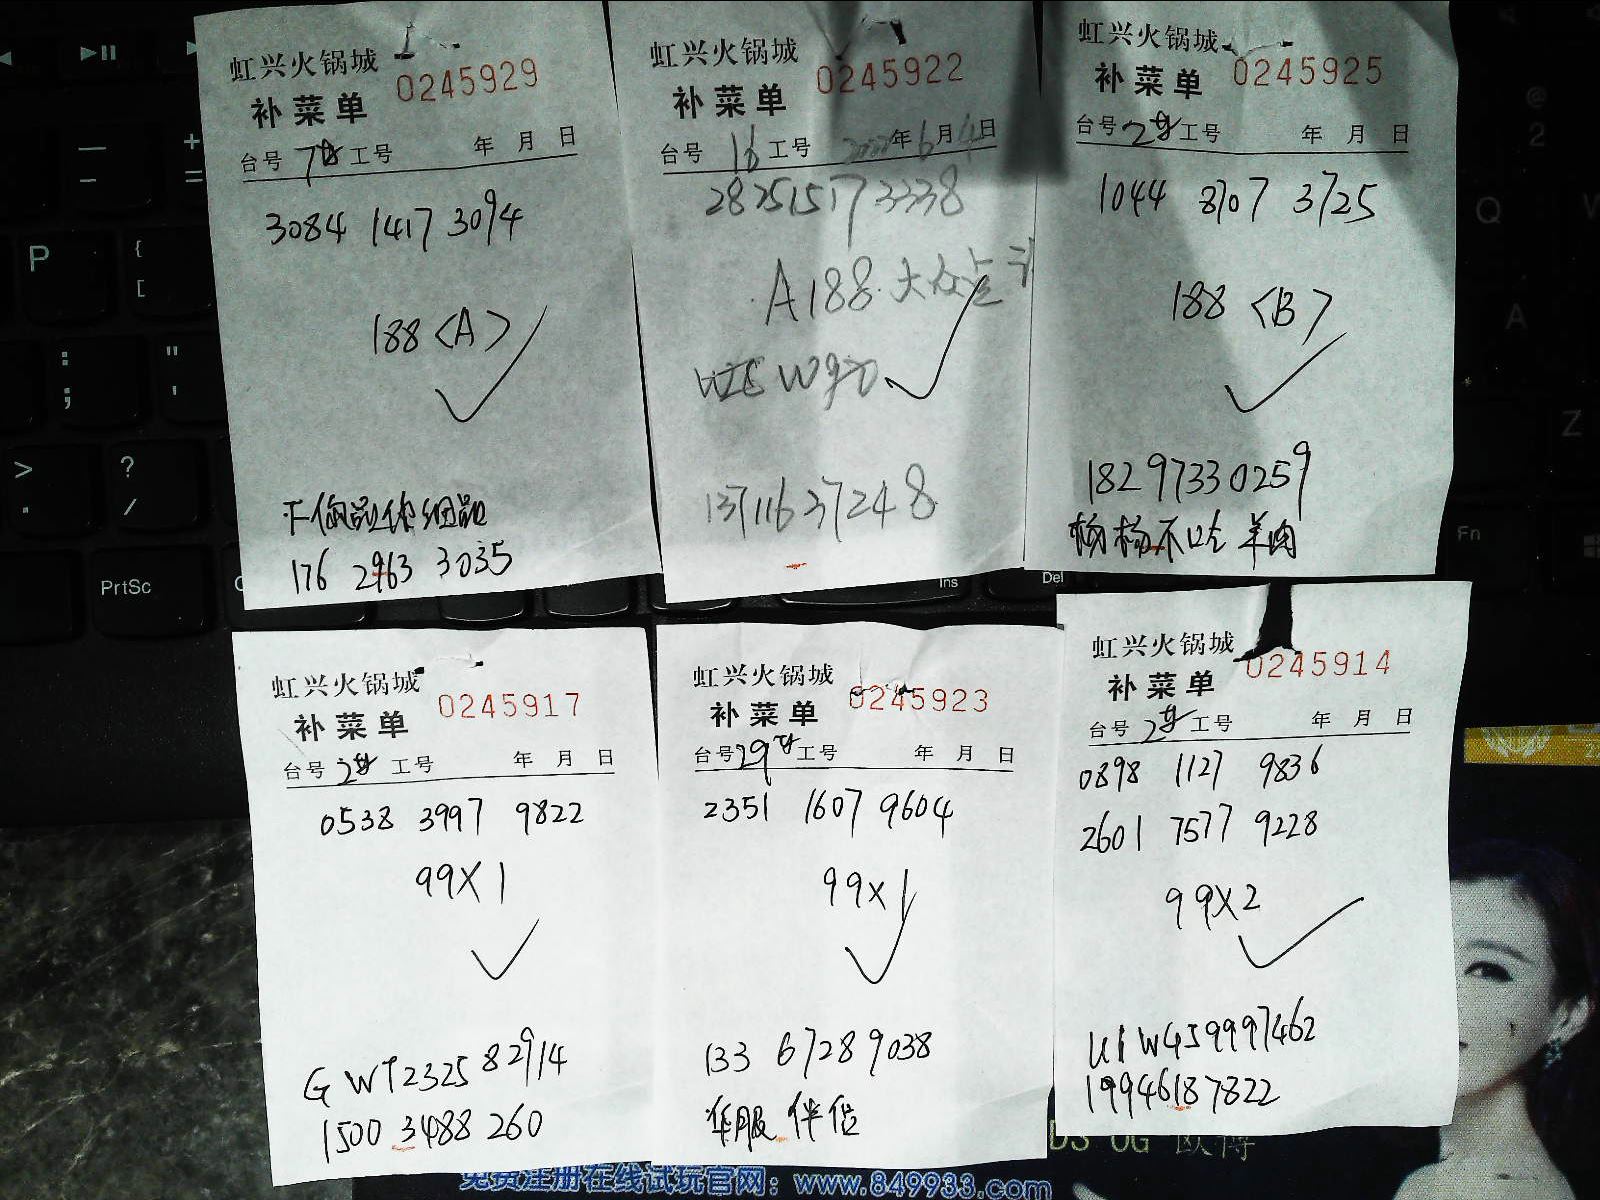 虹兴火锅城
0245929
补菜单
台号 7 工号 年 月 日
3084 1417 3094
188 <A>
176 2963 3035
虹兴火锅城
0245922
补菜单
台号 16 工号 年 6 月 4 日
2825 1517 3338
A188 大众点评
13711637248
虹兴火锅城
0245925
补菜单
台号 2 工号 年 月 日
1044 8707 3725
188 <B>
18297330259
杨杨不吃羊肉
虹兴火锅城
0245917
补菜单
台号 2 工号 年 月 日
0538 3997 9822
99X1
GWT232582914
1500 3488 260
虹兴火锅城
0245923
补菜单
台号 29 工号 年 月 日
2351 1607 9604
99X1
133 6728 9038
华服伴侣
虹兴火锅城
0245914
补菜单
台号 2 工号 年 月 日
0898 1127 9836
2601 7577 9228
99X2
19946187822
DS OG 欧博
免费注册在线试玩官网：www.849933.com
PrtSc
Ins
Del
Fn
P
Q
A
Z